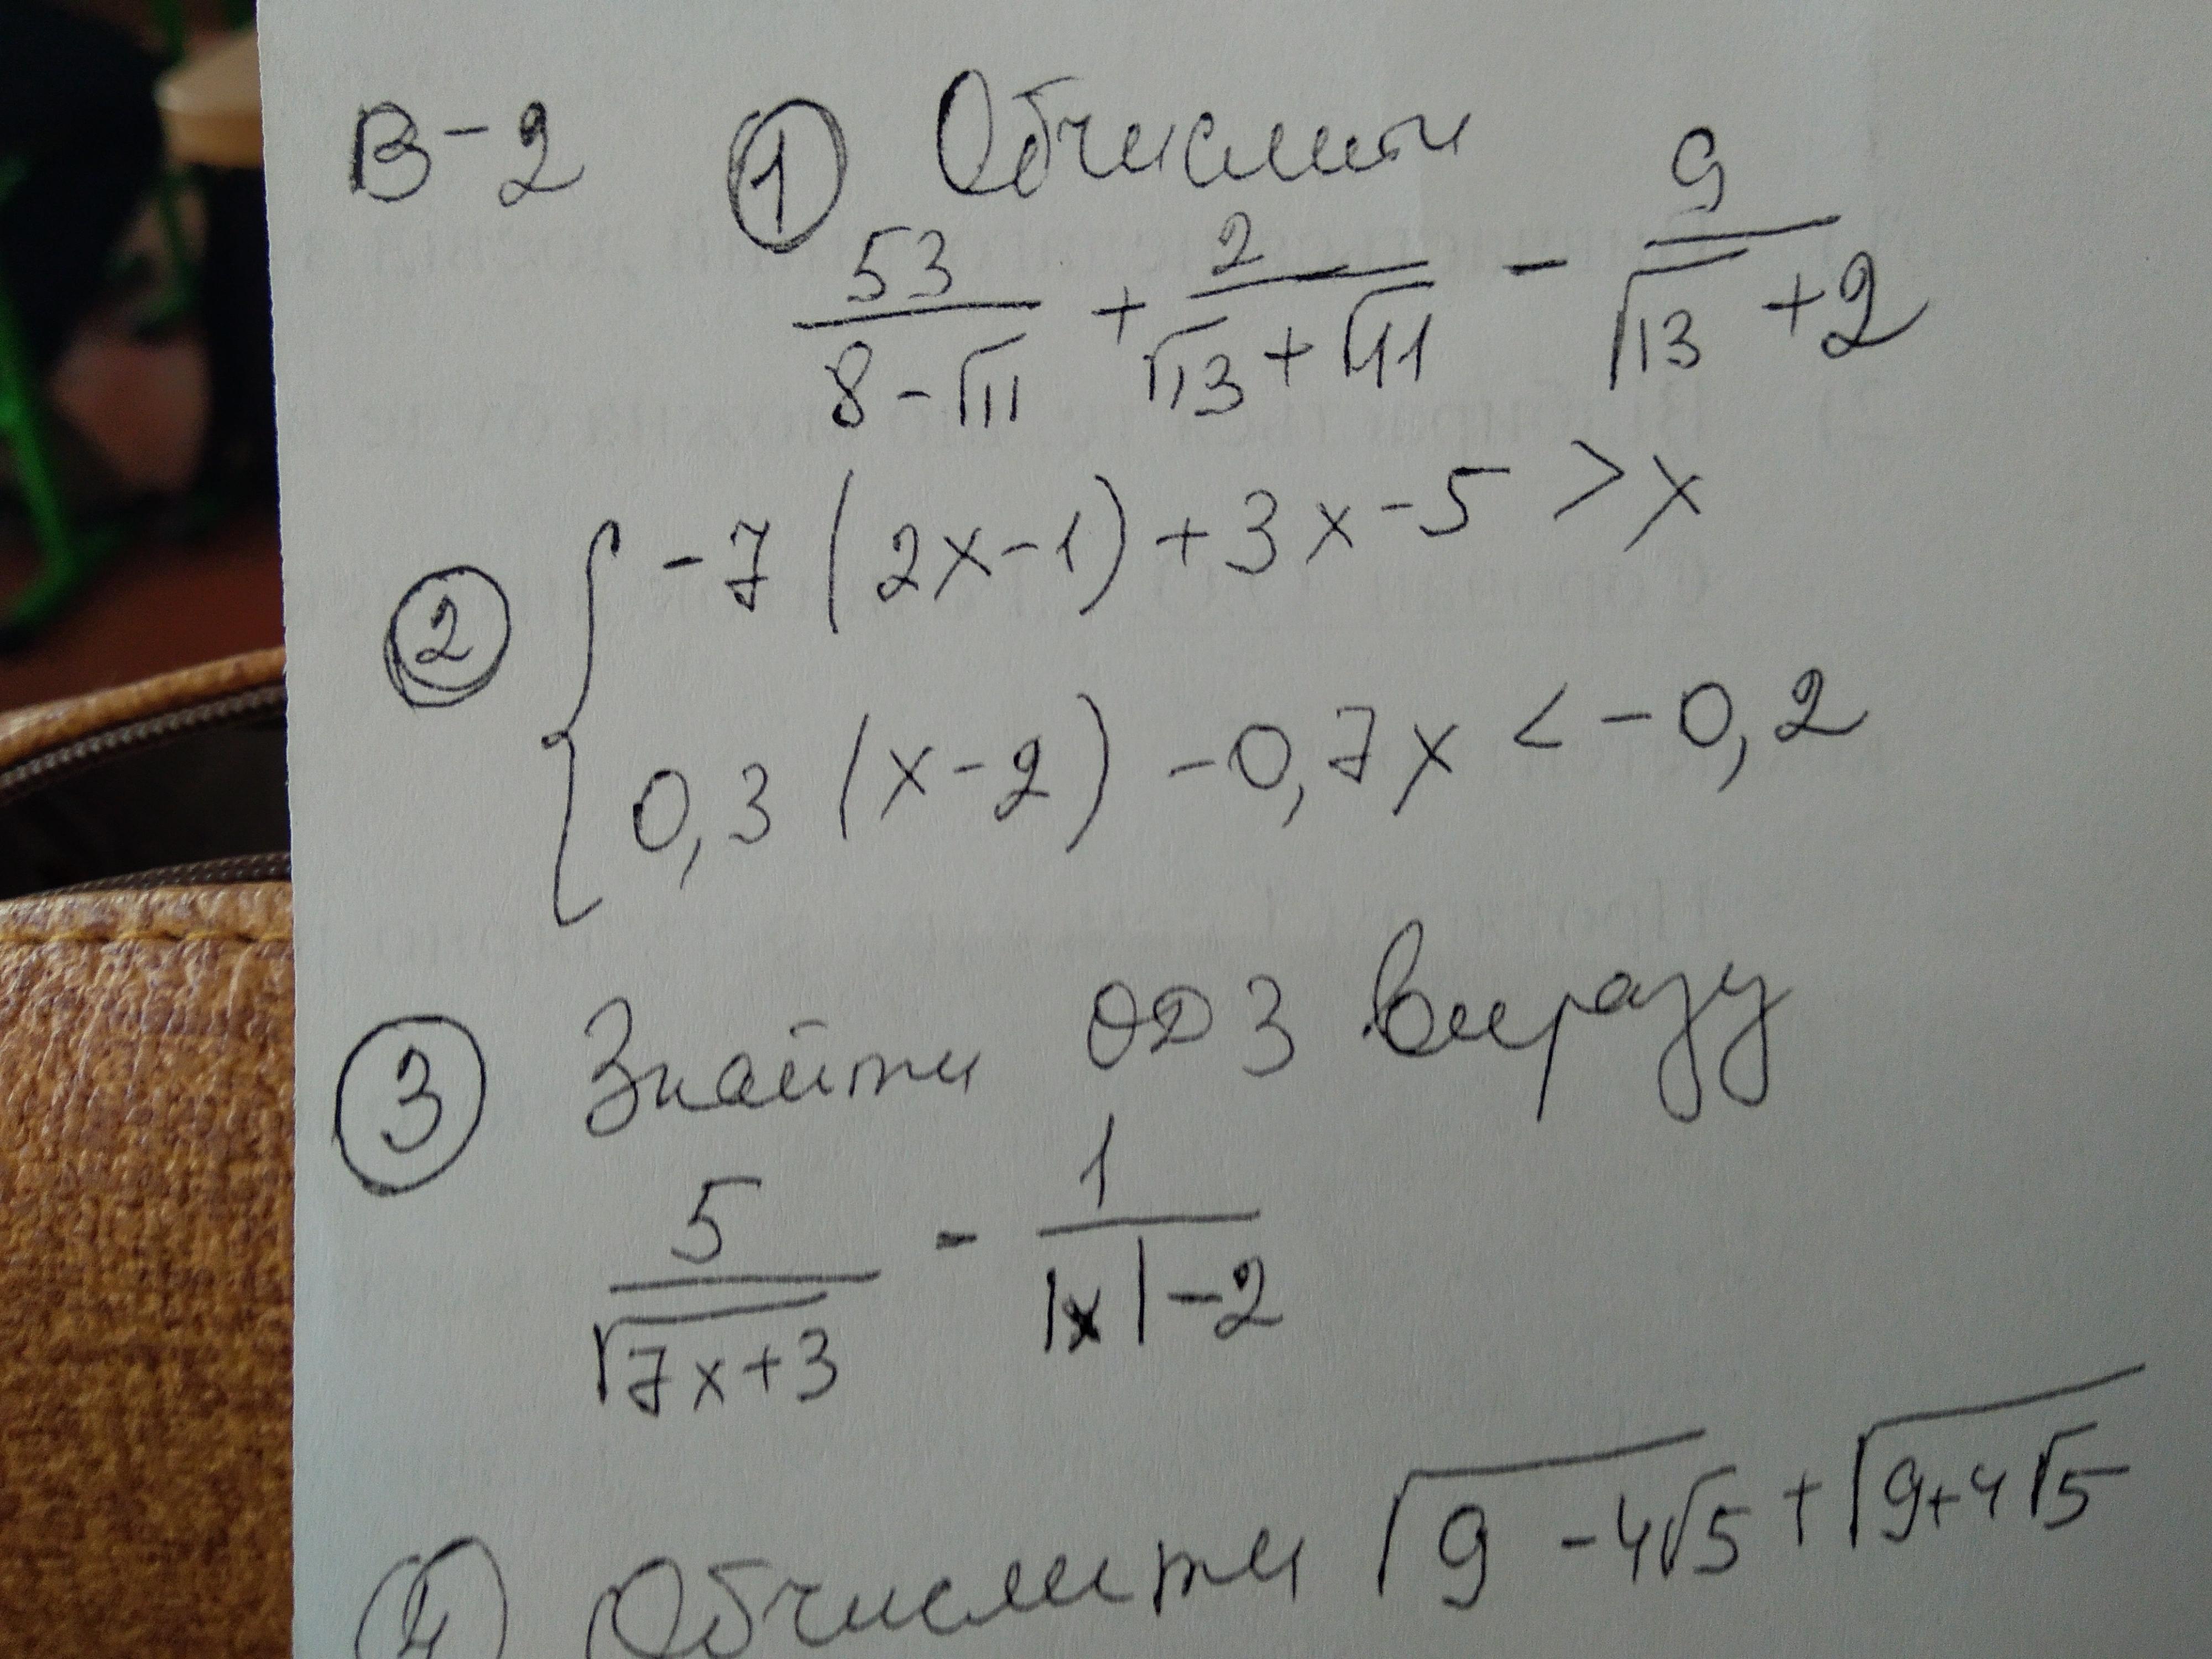 В-2 ① Обчислити
53/(8-√11) + 2/(√13+√11) - 9/(√13+2)
② { -7(2x-1)+3x-5>x
0,3(x-2)-0,7x<-0,2
③ Знайти ОДЗ виразу
5/√(7x+3) - 1/(|x|-2)
④ Обчислити √(9-4√5)+√(9+4√5)